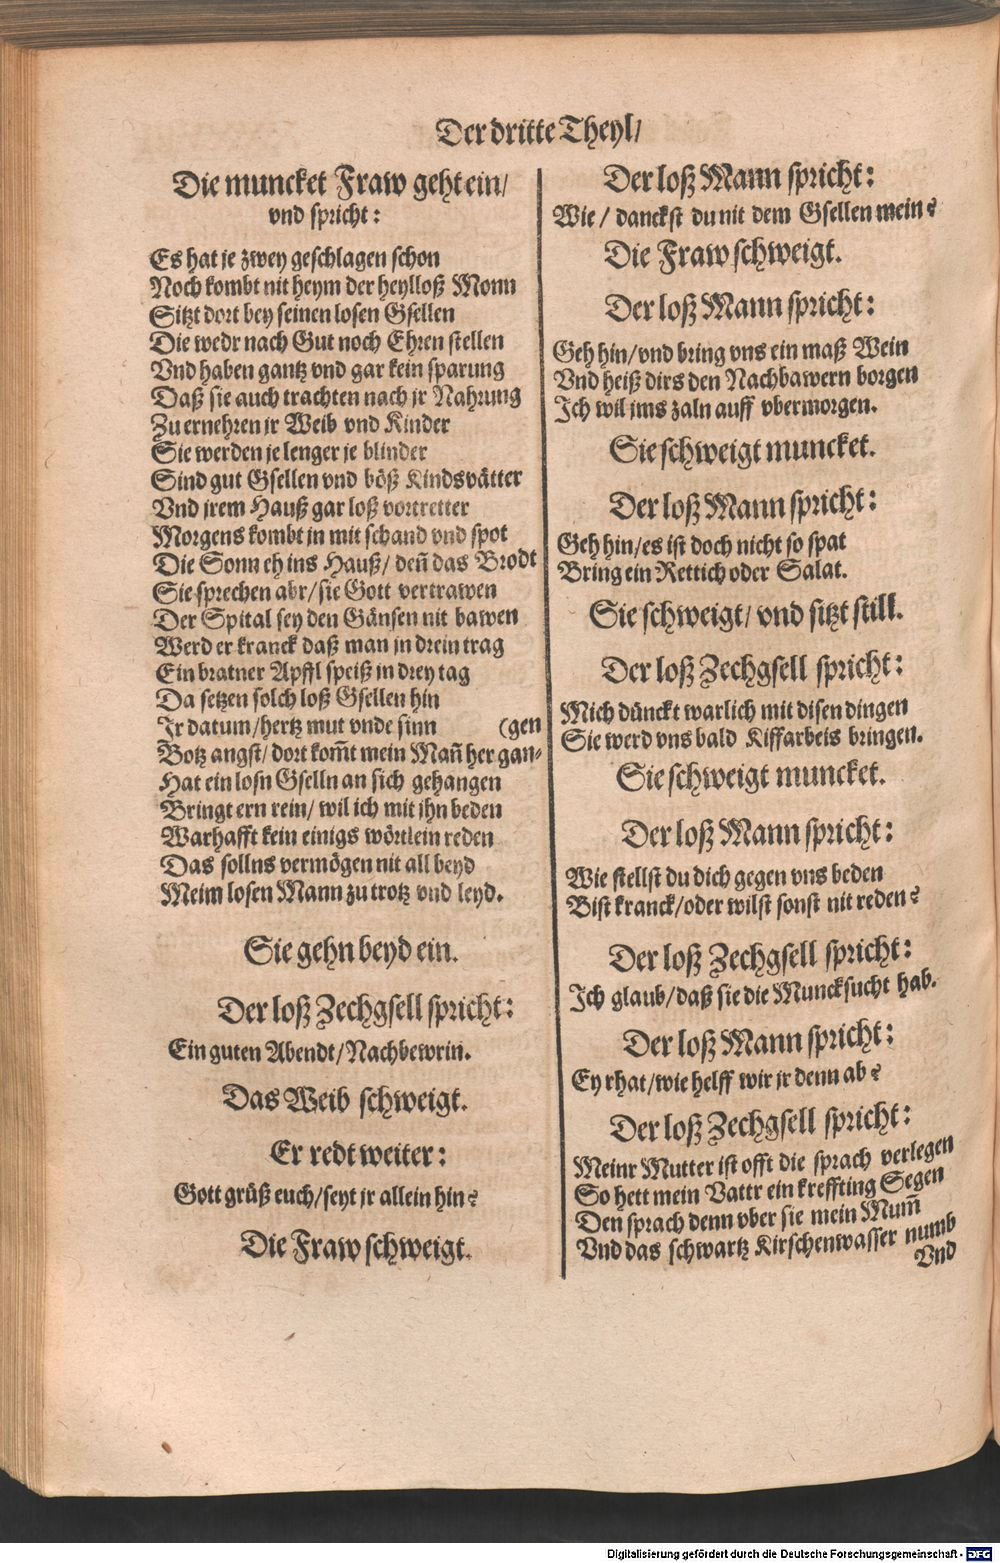 Der dritte Theyl/
Die muncket Fraw geht ein/
vnd spricht:
Es hat je zwey geschlagen schon
Noch kombt nit heym der heylloß Monn
Sitzt dort bey seinen losen Gsellen
Die wedr nach Gut noch Ehren stellen
Vnd haben gantz vnd gar kein sparung
Daß sie auch trachten nach jr Nahrung
Zu ernehren jr Weib vnd Kinder
Sie werden je lenger je blinder
Sind gut Gsellen vnd böß Kindsvätter
Vnd jrem Hauß gar loß vortretter
Morgens kombt jn mit schand vnd spot
Die Sonn eh ins Hauß/ deñ das Brodt
Sie sprechen abr/ sie Gott vertrawen
Der Spital sey den Gänsen nit bawen
Werd er kranck daß man jn drein trag
Ein bratner Apffl speiß jn drey tag
Da setzen solch loß Gsellen hin
Jr datum/ hertz mut vnde sinn (gen
Botz angst/ dort kom̃t mein Mañ her gan-
Hat ein losn Gselln an sich gehangen
Bringt ern rein/ wil ich mit jhn beden
Warhafft kein einigs wörtlein reden
Das sollns vermögen nit all beyd
Meim losen Mann zu trotz vnd leyd.
Sie gehn beyd ein.
Der loß Zechgsell spricht:
Ein guten Abendt/ Nachbewrin.
Das Weib schweigt.
Er redt weiter:
Gott grüß euch/ seyt jr allein hin?
Die Fraw schweigt.
Der loß Mann spricht:
Wie/ danckst du nit dem Gsellen mein?
Die Fraw schweigt.
Der loß Mann spricht:
Geh hin/ vnd bring vns ein maß Wein
Vnd heiß dirs den Nachbawern borgen
Ich wil jms zaln auff vbermorgen.
Sie schweigt muncket.
Der loß Mann spricht:
Geh hin/ es ist doch nicht so spat
Bring ein Rettich oder Salat.
Sie schweigt/ vnd sitzt still.
Der loß Zechgsell spricht:
Mich dünckt warlich mit disen dingen
Sie werd vns bald Kiffarbeis bringen.
Sie schweigt muncket.
Der loß Mann spricht:
Wie stellst du dich gegen vns beden
Bist kranck/ oder wilst sonst nit reden?
Der loß Zechgsell spricht:
Ich glaub/ daß sie die Muncksucht hab.
Der loß Mann spricht:
Ey rhat/ wie helff wir jr denn ab?
Der loß Zechgsell spricht:
Meinr Mutter ist offt die sprach verlegen
So hett mein Vattr ein kreffting Segen
Den sprach denn vber sie mein Mum̃
Vnd das schwartz Kirschenwasser numb
Vnd
Digitalisierung gefördert durch die Deutsche Forschungsgemeinschaft - DFG